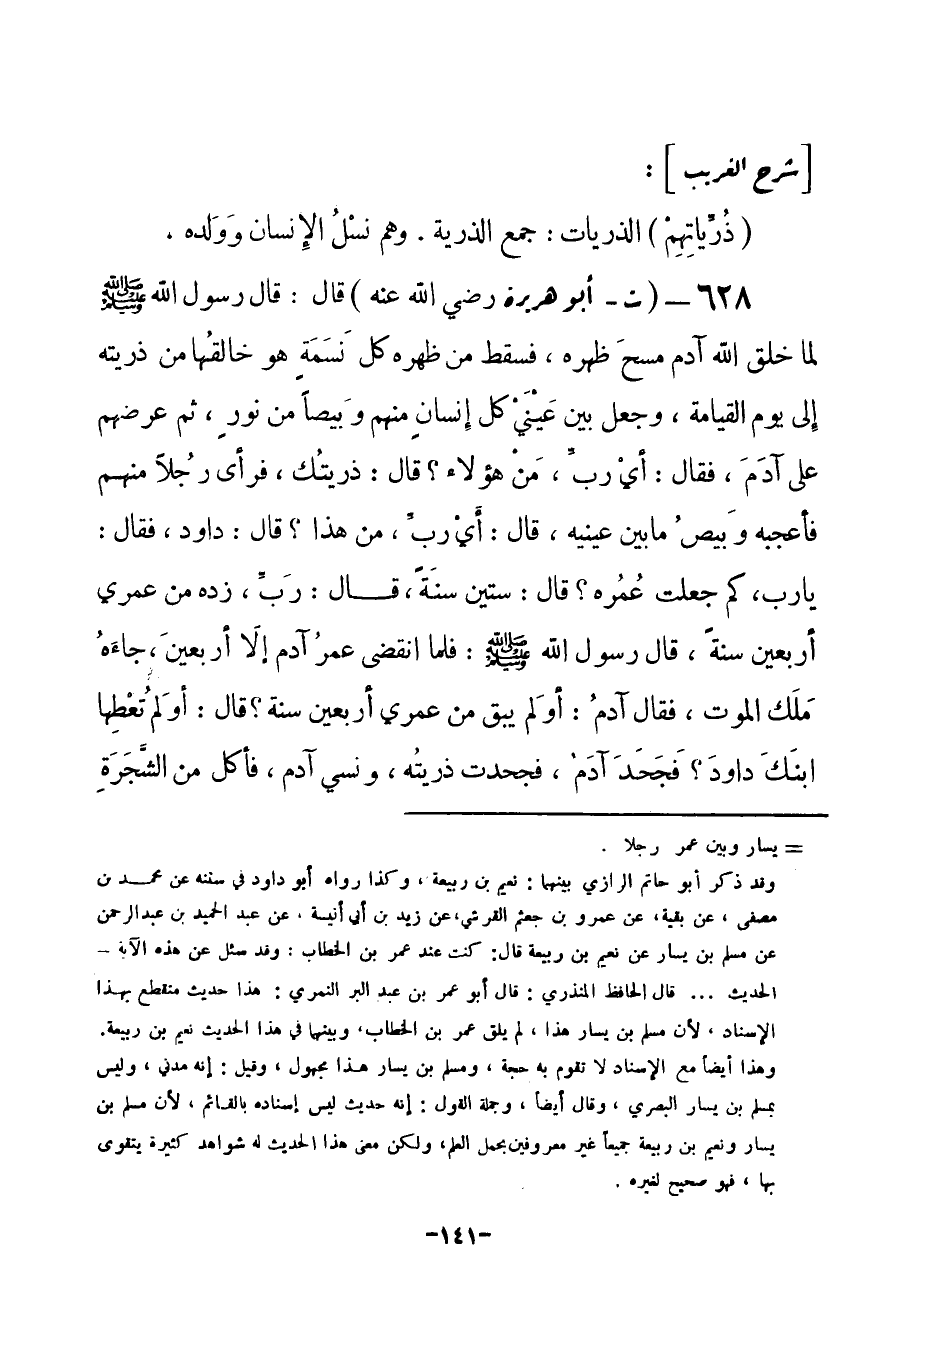 [ شرح الغريب ] :
( ذُرِّيَّاتِهِمْ ) الذريات : جمع الذرية . وهم نسْلُ الإنسان وَوَلده .
٦٢٨ – ( ت - أبو هريرة رضي الله عنه ) قال : قال رسول الله ﷺ
لما خلق الله آدم مسحَ ظهره ، فسقط من ظهره كل نَسَمَةٍ هو خالقُها من ذريته
إلى يوم القيامة ، وجعل بين عَيْنَيْ كل إنسانٍ منهم وَبيصاً من نورٍ ، ثم عرضهم
على آدَمَ ، فقال : أيْ ربِّ ، مَنْ هؤلاء ؟ قال : ذريتُك ، فرأى رجُلاً منهم
فأعجبه وَبيصُ مابين عينيه ، قال : أيْ ربِّ ، من هذا ؟ قال : داود ، فقال :
يارب، كم جعلت عُمُره ؟ قال : ستين سنَةً ، قــال : رَبِّ ، زده من عمري
أربعين سنةً ، قال رسول الله ﷺ : فلما انقضى عمرُ آدم إلَّا أربعينَ ، جاءَهُ
مَلَك الموت ، فقال آدمُ : أوَلم يبق من عمري أربعين سنة ؟ قال : أوَلم تُعْطِها
ابنَكَ داودَ ؟ فَجَحَدَ آدَمُ ، فجحدت ذريتُه ، ونسي آدم ، فأكل من الشَّجَرَةِ
= يسار وبين عمر رجلا .
وقد ذكر أبو حاتم الرازي بينهما : نعيم بن ربيعة ، وكذا رواه أبو داود في سننه عن محمــد بن
مصفى ، عن بقية، عن عمرو بن جعثم القرشي،عن زيد بن أبي أنيسة ، عن عبد الحميد بن عبدالرحمن
عن مسلم بن يسار عن نعيم بن ربيعة قال: كنت عند عمر بن الخطاب : وقد سئل عن هذه الآية –
الحديث ... قال الحافظ المنذري : قال أبو عمر بن عبد البر النمري : هذا حديث منقطع بهـذا
الإسناد ، لأن مسلم بن يسار هذا ، لم يلق عمر بن الخطاب، وبينهما في هذا الحديث نعيم بن ربيعة.
وهذا أيضاً مع الإسناد لا تقوم به حجة ، ومسلم بن يسار هـذا مجهول ، وقيل : إنه مدني ، وليس
بمسلم بن يسار البصري ، وقال أيضاً ، وجملة القول : إنه حديث ليس إسناده بالقـائم ، لأن مسلم بن
يسار ونعيم بن ربيعة جميعاً غير معروفين بحمل العلم، ولكن معنى هذا الحديث له شواهد كثيرة يتقوى
بها ، فهو صحيح لغيره .
-١٤١-